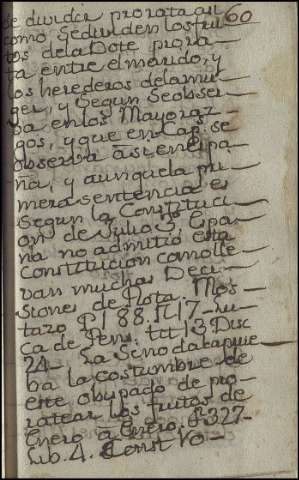 60
de dividir prorrata asi
como se dividen los fru
tos de la Dote prora
ta entre el marido, y
los herederos de la mu
ger, y segun se obser
ba en los Mayoraz
gos, y que en Cap. se
observa asi en espa
ña, y aunque la pri
mera sentencia es
segun la Constituci
on de Julio 3º, Espa
ña no admitio esta
Constitucion como lle
van muchas Deci
siones de Rota. Mos
tazo P 188. N 17- Lu
ca de Pens. tit 13 Disc
24- La Sinodal aprue
ba la costumbre de
este obispado de pro
ratear los frutos de
Enero a Enero, P 327-
Lib. 4. Const Vo-